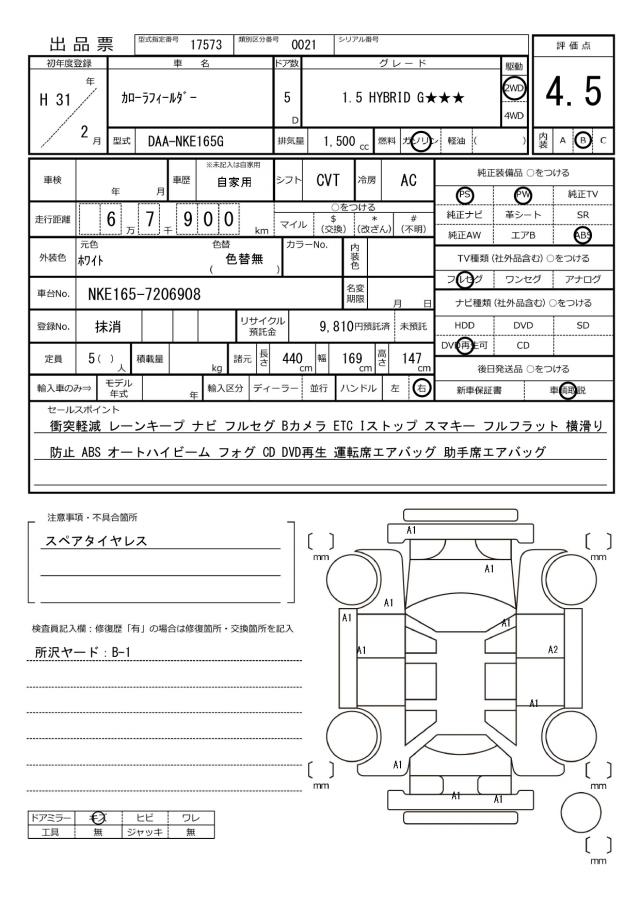 出品票 型式指定番号 17573 類別区分番号 0021 シリアル番号
評価点
4.5
内装 A B C
初年度登録 車名 ドア数 グレード 駆動
H 31 年 2 月
カローラフィールダー 5 D 1.5 HYBRID G★★★ 2WD 4WD
型式 DAA-NKE165G 排気量 1,500 cc 燃料 ガソリン 軽油 ( )
車検 年 月 車歴 ※未記入は自家用 自家用 シフト CVT 冷房 AC
走行距離 6 7 9 0 0 万 千 km
○をつける
マイル $(交換) *(改ざん) #(不明)
外装色 元色 ホワイト 色替 ( 色替無 ) カラーNo. 内装色
車台No. NKE165-7206908 名変期限 月 日
登録No. 抹消 リサイクル預託金 9,810円預託済 未預託
定員 5 ( ) 人 積載量 kg 諸元 長さ 440 cm 幅 169 cm 高さ 147 cm
輸入車のみ⇒ モデル年式 年 輸入区分 ディーラー 並行 ハンドル 左 右
純正装備品 ○をつける
PS PW 純正TV
純正ナビ 革シート SR
純正AW エアB ABS
TV種類 (社外品含む) ○をつける
フルセグ ワンセグ アナログ
ナビ種類 (社外品含む) ○をつける
HDD DVD SD
DVD再生可 CD
後日発送品 ○をつける
新車保証書 車輌取説
セールスポイント
衝突軽減 レーンキープ ナビ フルセグ Bカメラ ETC Iストップ スマキー フルフラット 横滑り
防止 ABS オートハイビーム フォグ CD DVD再生 運転席エアバッグ 助手席エアバッグ
注意事項・不具合箇所
スペアタイヤレス
検査員記入欄：修復歴「有」の場合は修復箇所・交換箇所を記入
所沢ヤード：B-1
ドアミラー キズ ヒビ ワレ
工具 無 ジャッキ 無
A1
[ ] mm [ ] mm
A1
A1
A1 A1
A1 A2
A1
A1
[ ] mm [ ] mm
A1 A1
[ ] mm